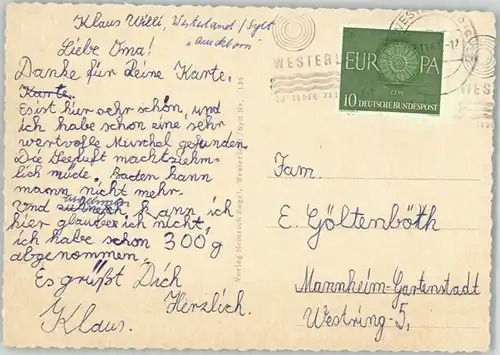 Klaus Willi, Westerland / Sylt
Liebe Oma!
Danke für Deine Karte,
Karte.
Es ist hier sehr schön, und
ich habe schon eine sehr
wertvolle Muschel gefunden.
Die Seeluft macht ziehm-
lich müde, Baden kann
mann nicht mehr.
Und zunehmen kann ich
hier glaube ich nicht,
ich habe schon 300 g
abgenommen.
Es grüßt Dich
Herzlich.
Klaus.
Verlag Heinrich Engel, Westerland/Sylt Nr. 135
WESTERL
EUROPA
CEPT
10 DEUTSCHE BUNDESPOST
Fam.
E. Göltenböth
Mannheim-Gartenstadt
Westring-5,